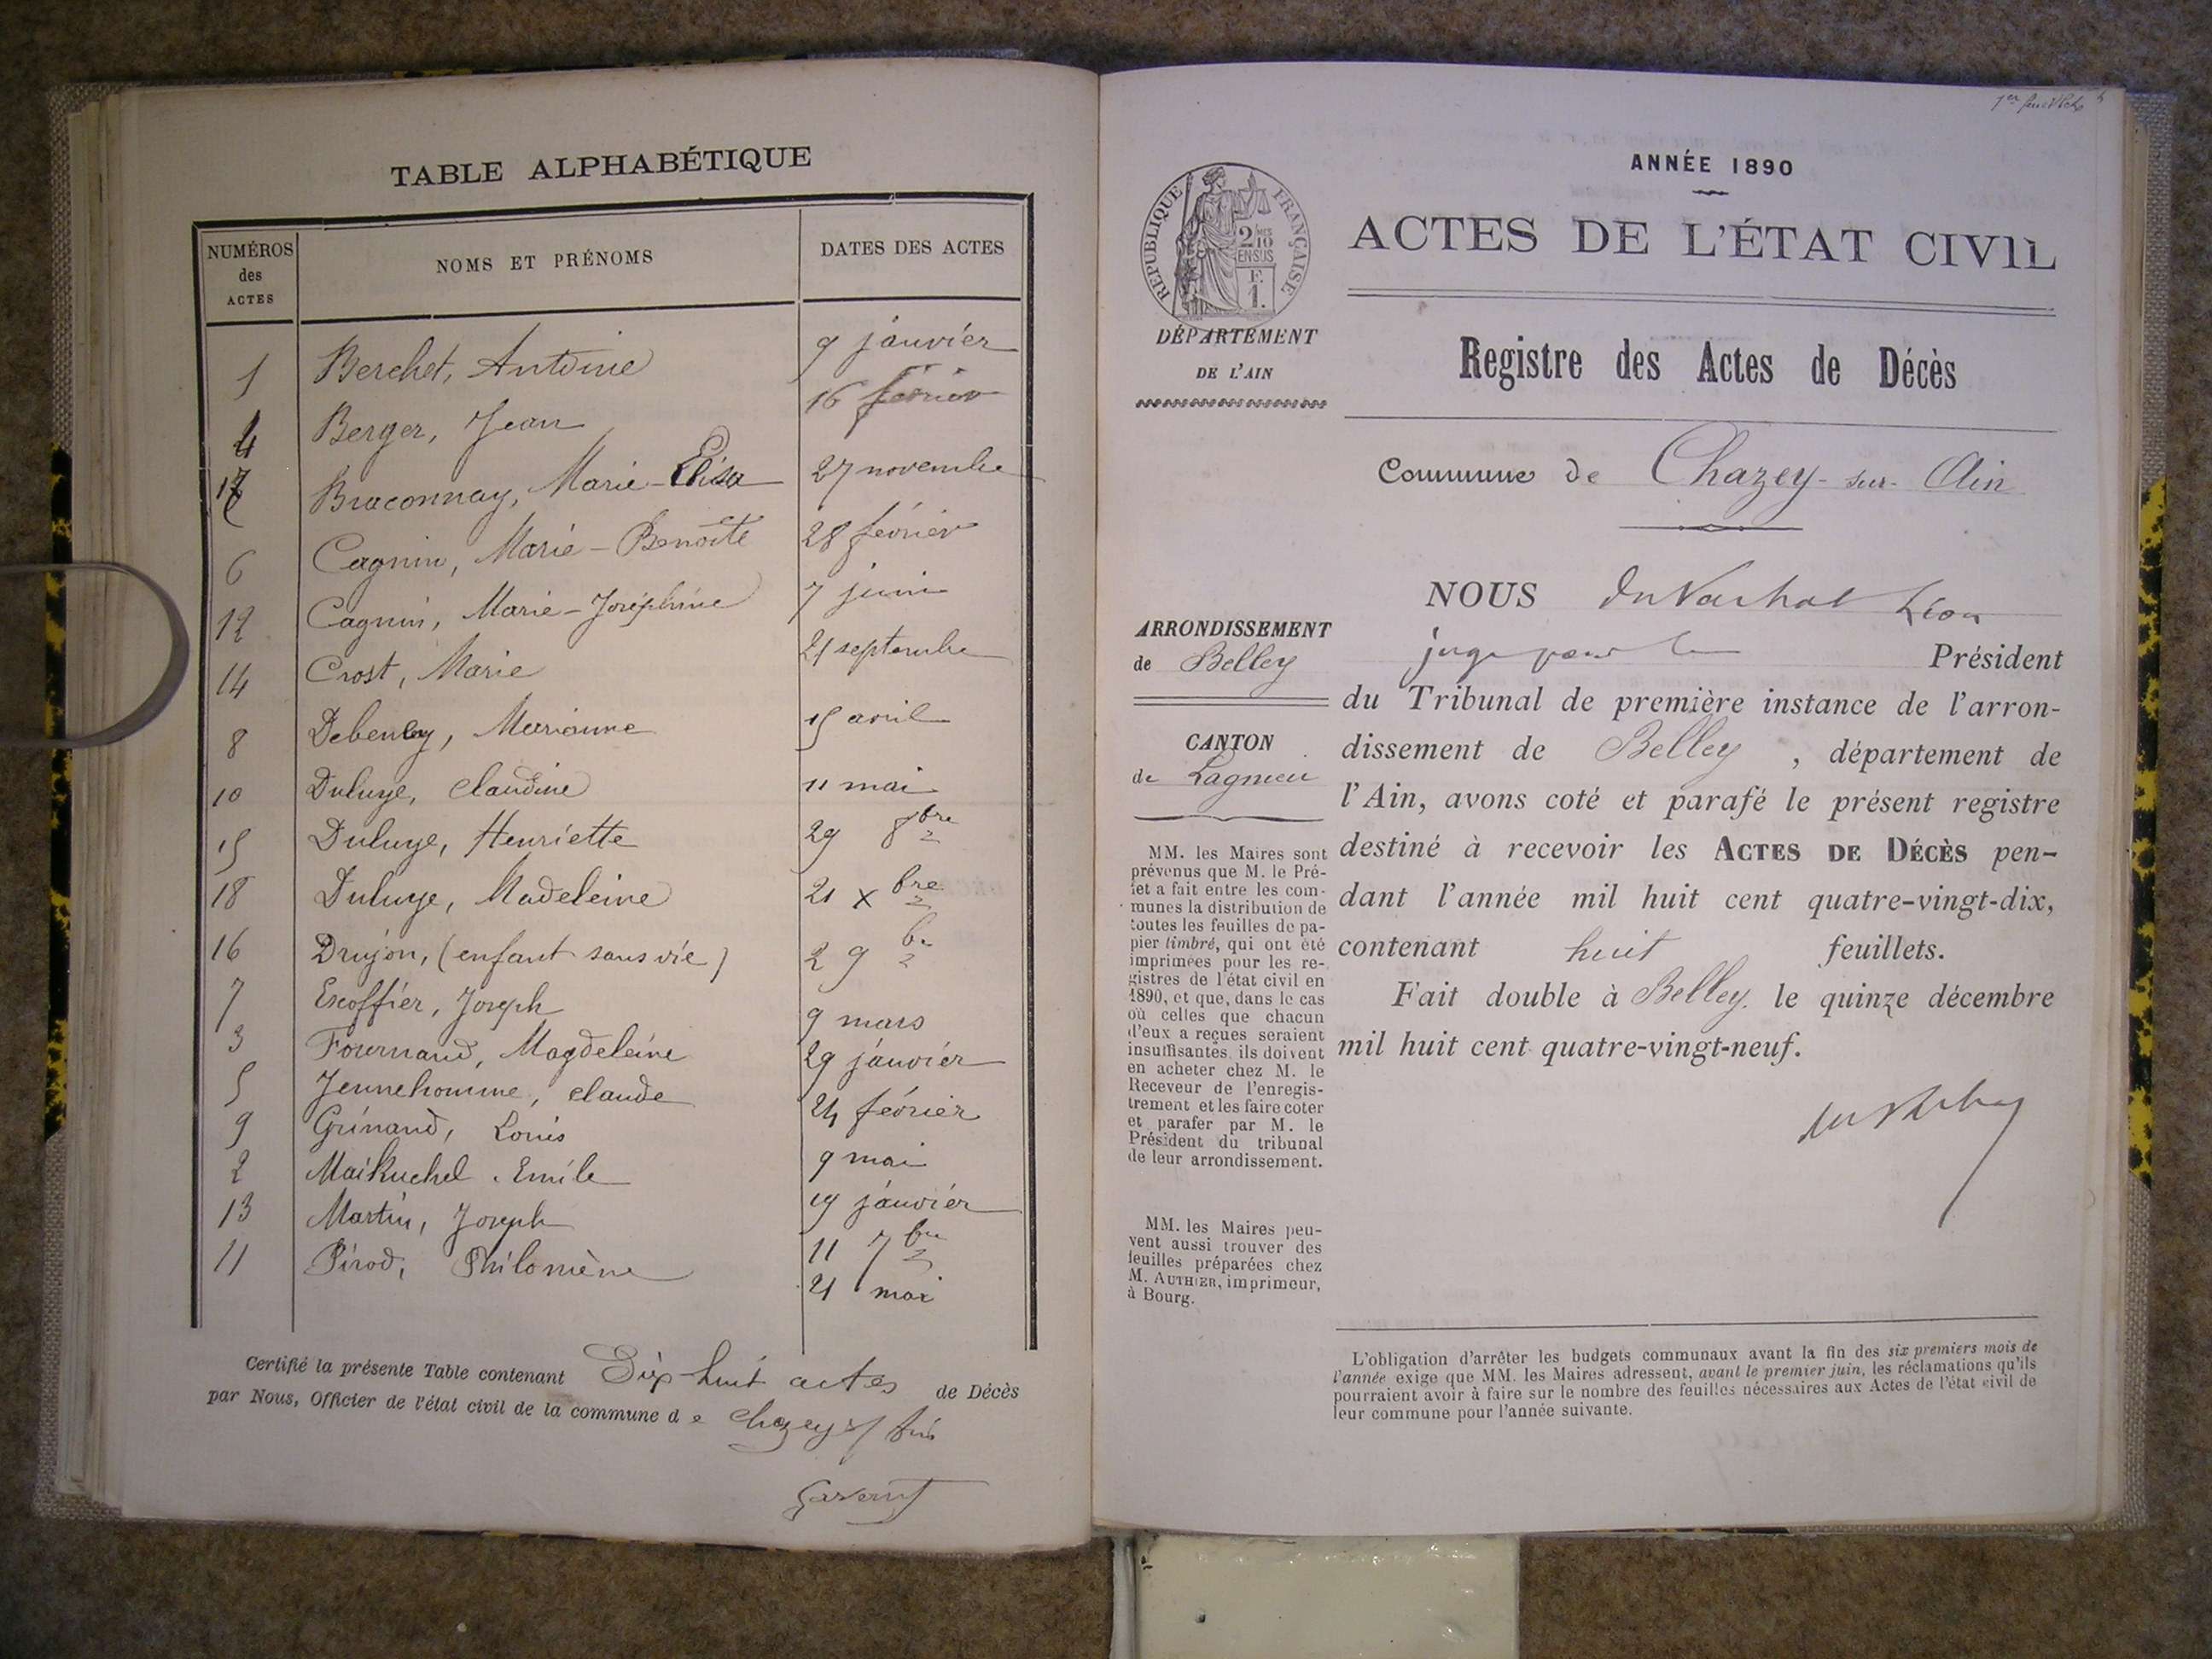 TABLE ALPHABÉTIQUE
NUMÉROS des ACTES NOMS ET PRÉNOMS DATES DES ACTES
1 Berchet, Antoine 9 janvier
4 Berger, Jean 16 février
17 Braconnay, Marie-Elisa 27 novembre
6 Cagnin, Marie-Benoîte 28 février
12 Cagnin, Marie-Joséphine 7 juin
14 Crost, Marie 21 septembre
8 Debeney, Marianne 15 avril
10 Duluye, Claudine 11 mai
15 Duluye, Henriette 29 8bre
18 Duluye, Madeleine 21 xbre
16 Drujon, (enfant sans vie) 2 9bre
7 Escoffier, Joseph 9 mars
3 Fournand, Magdeleine 29 janvier
5 Jennehomme, Claude 24 février
9 Grinand, Louis 9 mai
2 Maikuchel, Emile 19 janvier
13 Martin, Joseph 11 7bre
11 Pirod, Philomène 21 mai
Certifié la présente Table contenant Dix-huit actes de Décès
par Nous, Officier de l'état civil de la commune de Chazey s/ Ain
1er
ANNÉE 1890
ACTES DE L'ÉTAT CIVIL
RÉPUBLIQUE FRANÇAISE
2/10MES
EN SUS
F.
1.
DÉPARTEMENT
DE L'AIN
Registre des Actes de Décès
Commune de Chazey-sur-Ain
ARRONDISSEMENT
de Belley
CANTON
de Lagnieu
MM. les Maires sont
prévenus que M. le Pré-
fet a fait entre les com-
munes la distribution de
toutes les feuilles de pa-
pier timbré, qui ont été
imprimées pour les re-
gistres de l'état civil en
1890, et que, dans le cas
où celles que chacun
d'eux a reçues seraient
insuffisantes, ils doivent
en acheter chez M. le
Receveur de l'enregis-
trement et les faire coter
et parafer par M. le
Président du tribunal
de leur arrondissement.
MM. les Maires peu-
vent aussi trouver des
feuilles préparées chez
M. AUTHIER, imprimeur,
à Bourg.
NOUS Léon
juge pour le Président
du Tribunal de première instance de l'arron-
dissement de Belley, département de
l'Ain, avons coté et parafé le présent registre
destiné à recevoir les ACTES DE DÉCÈS pen-
dant l'année mil huit cent quatre-vingt-dix,
contenant huit feuillets.
Fait double à Belley, le quinze décembre
mil huit cent quatre-vingt-neuf.
L'obligation d'arrêter les budgets communaux avant la fin des six premiers mois de
l'année exige que MM. les Maires adressent, avant le premier juin, les réclamations qu'ils
pourraient avoir à faire sur le nombre des feuilles nécessaires aux Actes de l'état civil de
leur commune pour l'année suivante.